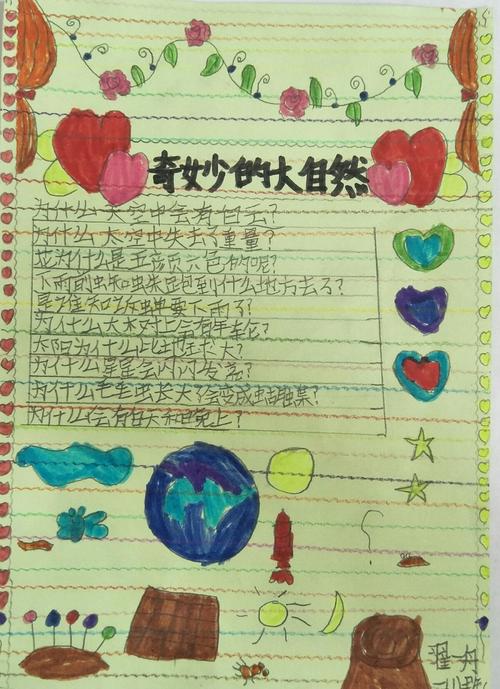 奇妙的大自然
为什么太空中会有
为什么太空中失去了重量?
花为什么是五颜六色的呢?
下雨时虫和虫朱都到什么地方去了?
是谁知
要下雨了?
为什么大木对上会有年车仑?
太阳为什么比地球大?
为什么星星会闪闪发亮?
为什么毛毛虫长大了会变成
为什么会有白天和晚上?